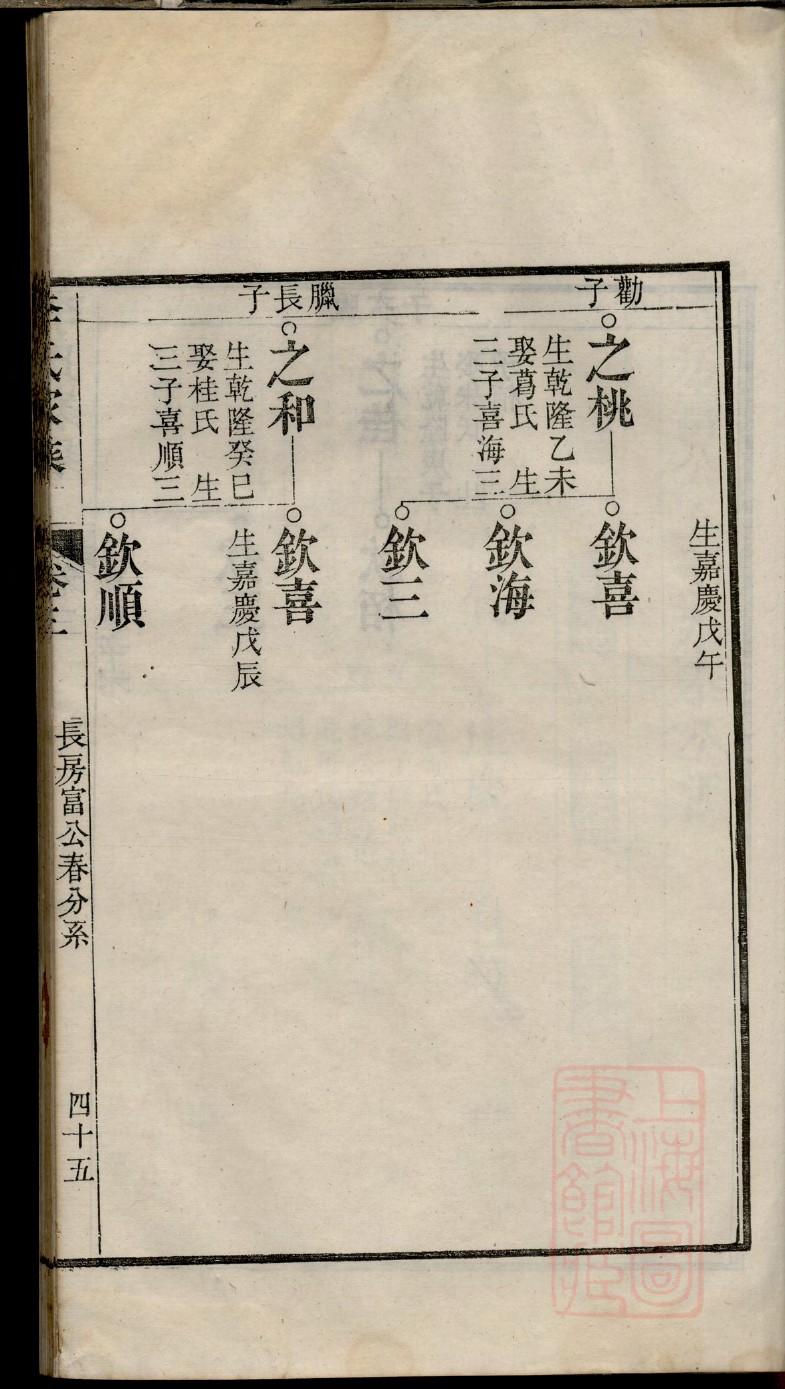 生嘉慶戊午
勸子
之桃
生乾隆乙未
娶葛氏 生
三子喜海三
欽喜
欽海
欽三
臘長子
之和
生乾隆癸巳
娶桂氏 生
三子喜順三
欽喜
生嘉慶戊辰
欽順
卷三
長房富公春分系
四十五
上海圖
書館藏